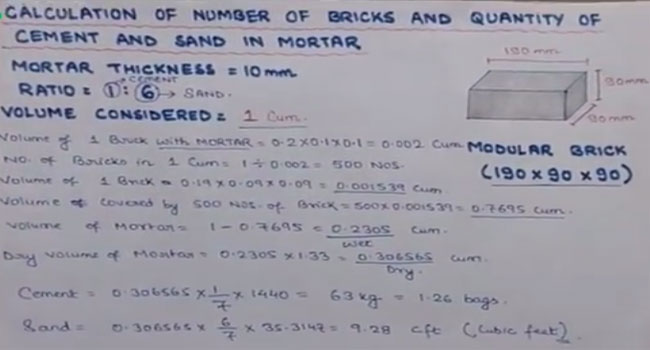 CALCULATION OF NUMBER OF BRICKS AND QUANTITY OF
CEMENT AND SAND IN MORTAR
190 mm
90mm
90mm
MORTAR THICKNESS = 10 mm
CEMENT
RATIO = 1 : 6 → SAND.
VOLUME CONSIDERED = 1 Cum.
Volume of 1 Brick with MORTAR = 0.2 x 0.1 x 0.1 = 0.002 Cum
MODULAR BRICK
(190 x 90 x 90)
NO. of Bricks in 1 Cum = 1 ÷ 0.002 = 500 NOS.
Volume of 1 Brick = 0.19 x 0.09 x 0.09 = 0.001539 Cum
Volume of Covered by 500 NOS. of Brick = 500 x 0.001539 = 0.7695 Cum.
Volume of Mortar = 1 - 0.7695 = 0.2305 Cum.
Wet
Dry Volume of Mortar = 0.2305 x 1.33 = 0.306565 Cum.
Dry.
Cement = 0.306565 x 1/7 x 1440 = 63 kg = 1.26 bags.
Sand = 0.306565 x 6/7 x 35.3147 = 9.28 cft (Cubic feet).